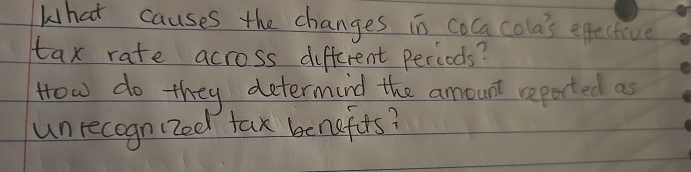 What causes the changes in coca cola's effective
tax rate across different periods?
How do they determind the amount reported as
unrecognized tax benefits?